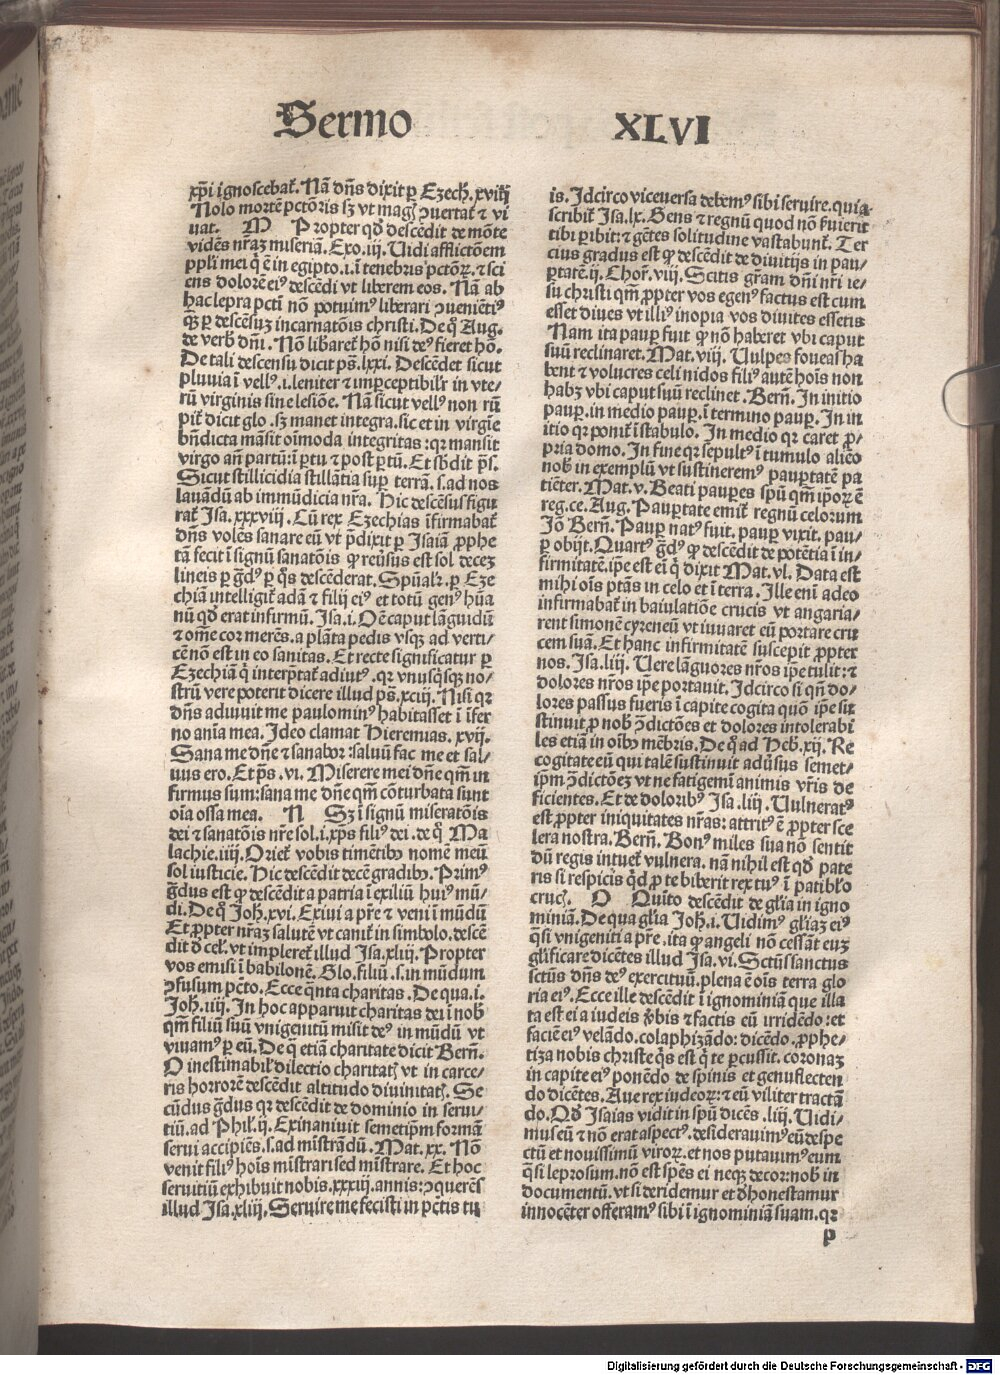 Sermo XLVI
xp̄i ignoscebat̉. Nā dn̄s dixit ꝑ Ezech̉. xviij
Nolo mortē pctōris sꝫ vt mag̉ ꝯuertat̉ ⁊ vi
uat. M Propter qḋ descēdit de mōte
vidēs nr̄aꝫ miseriā. Exo. iij. Uidi afflictōem
ppl̄i mei q̇ ē in egipto. i. ī tenebris pctōꝝ. ⁊ sci
ens dolorē eiꝰ descēdi vt liberem eos. Nā ab
hac lepra pctī nō potuimꝰ liberari ꝯueniētiꝰ
qꝫ ꝑ descēsuꝫ incarnatōis christi. De q̊ Aug.
de verb̉ dn̄i. Nō libaret̉ hō nisi deꝰ fieret hō.
De tali descensu dicit ps̄. lxxi. Descēdet sicut
pluuia ī vellꝰ. i. leniter ⁊ imꝑceptibilr̉ in vte/
rū virginis sine lesiōe. Nā sicut vellꝰ non rū
pit̉ dicit glo. sꝫ manet integra. sic et in virgīe
bn̄dicta māsit oīmoda integritas: qꝛ mansit
virgo an̄ partū: ī ꝑtu ⁊ post ꝑtū. Et sb̄dit ps̄.
Sicut stillicidia stillātia suꝑ terrā. s. ad nos
lauādū ab immūdicia nr̄a. Hic descēsus figu
rat̉ Isa. xxxviij. Cū rex Ezechias īfirmabat̉
dn̄s volēs sanare eū vt p̄dixit ꝑ Isaiā ꝓphe
tā fecit ī signū sanatōis ꝙ reūsus est sol decez
lineis ꝑ gͣdꝰ ꝑ q̊s descēderat. Spūalr̉. ꝑ Eze
chiā intelligit̉ adā ⁊ filij eiꝰ et totū genꝰ hūa
nū qḋ erat infirmū. Isa. i. Oē caput lāguidū
⁊ om̄e cor merēs. a plāta pedis vsqꝫ ad verti/
cē nō est in eo sanitas. Et recte significatur ꝑ
Ezechiā q̇ interp̄tat̉ adiutꝰ. qꝛ vnusq̇sqꝫ no/
strū vere poterit dicere illud ps̄. xciij. Nisi qꝛ
dn̄s adiuuit me paulominꝰ habitasset ī īfer
no anīa mea. Ideo clamat Hieremias. xvij.
Sana me dn̄e ⁊ sanabor: saluū fac me et sal/
uus ero. Et ps̄. vi. Miserere mei dn̄e qm̄ in
firmus sum: sana me dn̄e qm̄ cōturbata sunt
oīa ossa mea. N Sꝫ ī signū miseratōis
dei ⁊ sanatōis nr̄e sol. i. xp̄s filiꝰ dei. de q̊ Ma
lachie. iiij. Oriet̉ vobis timētibꝫ nomē meū
sol iusticie. Hic descēdit decē gradibꝫ. Primꝰ
gͣdus est ꝙ descēdit a patria ī exiliū huiꝰ mū/
di. De q̊ Joh̉. xvi. Exiui a pr̄e ⁊ veni ī mūdū
Et ꝓpter nr̄aꝫ salutē vt canit̉ in simbolo. descē
dit d̄ cel̉. vt impleret̉ illud Isa. xliij. Propter
vos emisi ī babilonē. Glo. filiū. s. in mūdum
ꝯfusum pctō. Ecce q̇nta charitas. De qua. i.
Joh̉. iiij. In hoc apparuit charitas dei ī nob̉
qm̄ filiū suū vnigenitū misit deꝰ in mūdū vt
viuamꝰ ꝑ eū. De q̊ etiā charitate dicit Bern̄.
O inestimabil̉ dilectio charitat̉ vt in carce/
ris horrorē descēdit altitudo diuinitat̉. Se
cūdus gͣdus qꝛ descēdit de dominio in serui/
tiū. ad Phil̉. ij. Exinaniuit semetip̄m formā
serui accipiēs. s. ad mīstrādū. Mat. xx. Nō
venit filiꝰ hoīs mīstrari sed mīstrare. Et hoc
seruitiū exhibuit nobis. xxxiij. annis: ꝯquerēs
illud Isa. xliij. Seruire me fecisti in pctīs tu
is. Idcirco viceuersa debemꝰ sibi seruire. quia
scribit̉ Isa. lx. Gens ⁊ regnū quod nō fͣuierit
tibi ꝑibit: ⁊ gētes solitudine vastabunt̉. Ter
cius gradus est ꝙ descēdit de diuitijs in pau/
ꝑtatē. ij. Chor̉. viij. Scitis gr̄am dn̄i nr̄i ie/
su christi qm̄ ꝓpter vos egenꝰ factus est cum
esset diues vt illiꝰ inopia vos diuites essetis
Nam ita pauꝑ fuit ꝙ nō haberet vbi caput
suū reclinaret. Mat. viij. Uulpes foueas ha
bent ⁊ volucres celi nidos filiꝰ autē hoīs non
habꝫ vbi caput suū reclinet. Bern̄. In initio
pauꝑ. in medio pauꝑ. ī termino pauꝑ. In in
itio qꝛ ponit̉ ī stabulo. In medio qꝛ caret ꝓ/
pria domo. In fine qꝛ sepultꝰ ī tumulo alieō
nob̉ in exemplū vt sustineremꝰ pauꝑtatē pa
tiēter. Mat. v. Beati pauꝑes spū qm̄ ip̄oꝝ ē
reg. ce. Aug. Pauꝑtate emit̉ regnū celorum
Jō Bern̄. Pauꝑ natꝰ fuit. pauꝑ vixit. pau/
ꝑ obijt. Quartꝰ gͣdꝰ ꝙ descēdit de potētia ī in/
firmitatē. ip̄e est ei q̇ dixit Mat. vl. Data est
mihi oīs ptās in celo et ī terra. Ille enī adeo
infirmabat̉ in baiulatiōe crucis vt angaria/
rent simonē cyreneū vt iuuaret eū portare cru
cem suā. Et hanc infirmitatē suscepit ꝓpter
nos. Isa. liij. Uere lāguores nr̄os ip̄e tulit: ⁊
dolores nr̄os ip̄e portauit. Idcirco si qn̄ do/
lores passus fueris ī capite cogita quō ip̄e su
stinuit ꝓ nob̉ ꝯdictōes et dolores intolerabi
les etiā in oībꝫ mēbris. De q̊ ad Heb̉. xij. Re
cogitate eū qui talē sustinuit adūsus semet/
ip̄m ꝯdictōez vt ne fatigemī animis vr̄is de
ficientes. Et de doloribꝰ Isa. liij. Uulneratꝰ
est ꝓpter iniquitates nr̄as: attritꝰ ē ꝓpter sce
lera nostra. Bern̄. Bonꝰ miles sua nō sentit
dū regis intuet̉ vulnera. nā nihil est qḋ pate
ris si respicis q̇d ꝓ te biberit rex tuꝰ ī patibl̉o
cruc̉. O Quīto descēdit de gl̄ia in igno
miniā. De qua gl̄ia Joh̉. i. Uidimꝰ gl̄iaꝫ eiꝰ
qͣsi vnigeniti a pr̄e. ita ꝙ angeli nō cessāt euꝫ
gl̄ificare dicētes illud Isa. vi. Sctūs sanctus
sctūs dn̄s deꝰ exercituū. plena ē oīs terra glo
ria eiꝰ. Ecce ille descēdit ī ignominiā que illa
ta est ei a iudeis v̄bis ⁊ factis eū irridēdo: et
faciē eiꝰ velādo. colaphizādo: dicēdo. ꝓphe/
tiza nobis christe q̇s est q̇ te ꝑcussit. coronaꝫ
in capite eiꝰ ponēdo de spinis et genuflecten
do dicētes. Aue rex iudeoꝝ: ⁊ eū viliter tractā
do. Qḋ Isaias vidit in spū dicēs. liij. Uidi/
mus eū ⁊ nō erat aspectꝰ. desiderauimꝰ eū despe
ctū et nouissimū viroꝝ. et nos putauimꝰ eum
qͣsi leprosum. nō est spēs ei neqꝫ decor: nob̉ in
documentū. vt si deridemur et d̄honestamur
innocēter offeramꝰ sibi ī ignominiā suam. qꝛ
p
Digitalisierung gefördert durch die Deutsche Forschungsgemeinschaft - DFG